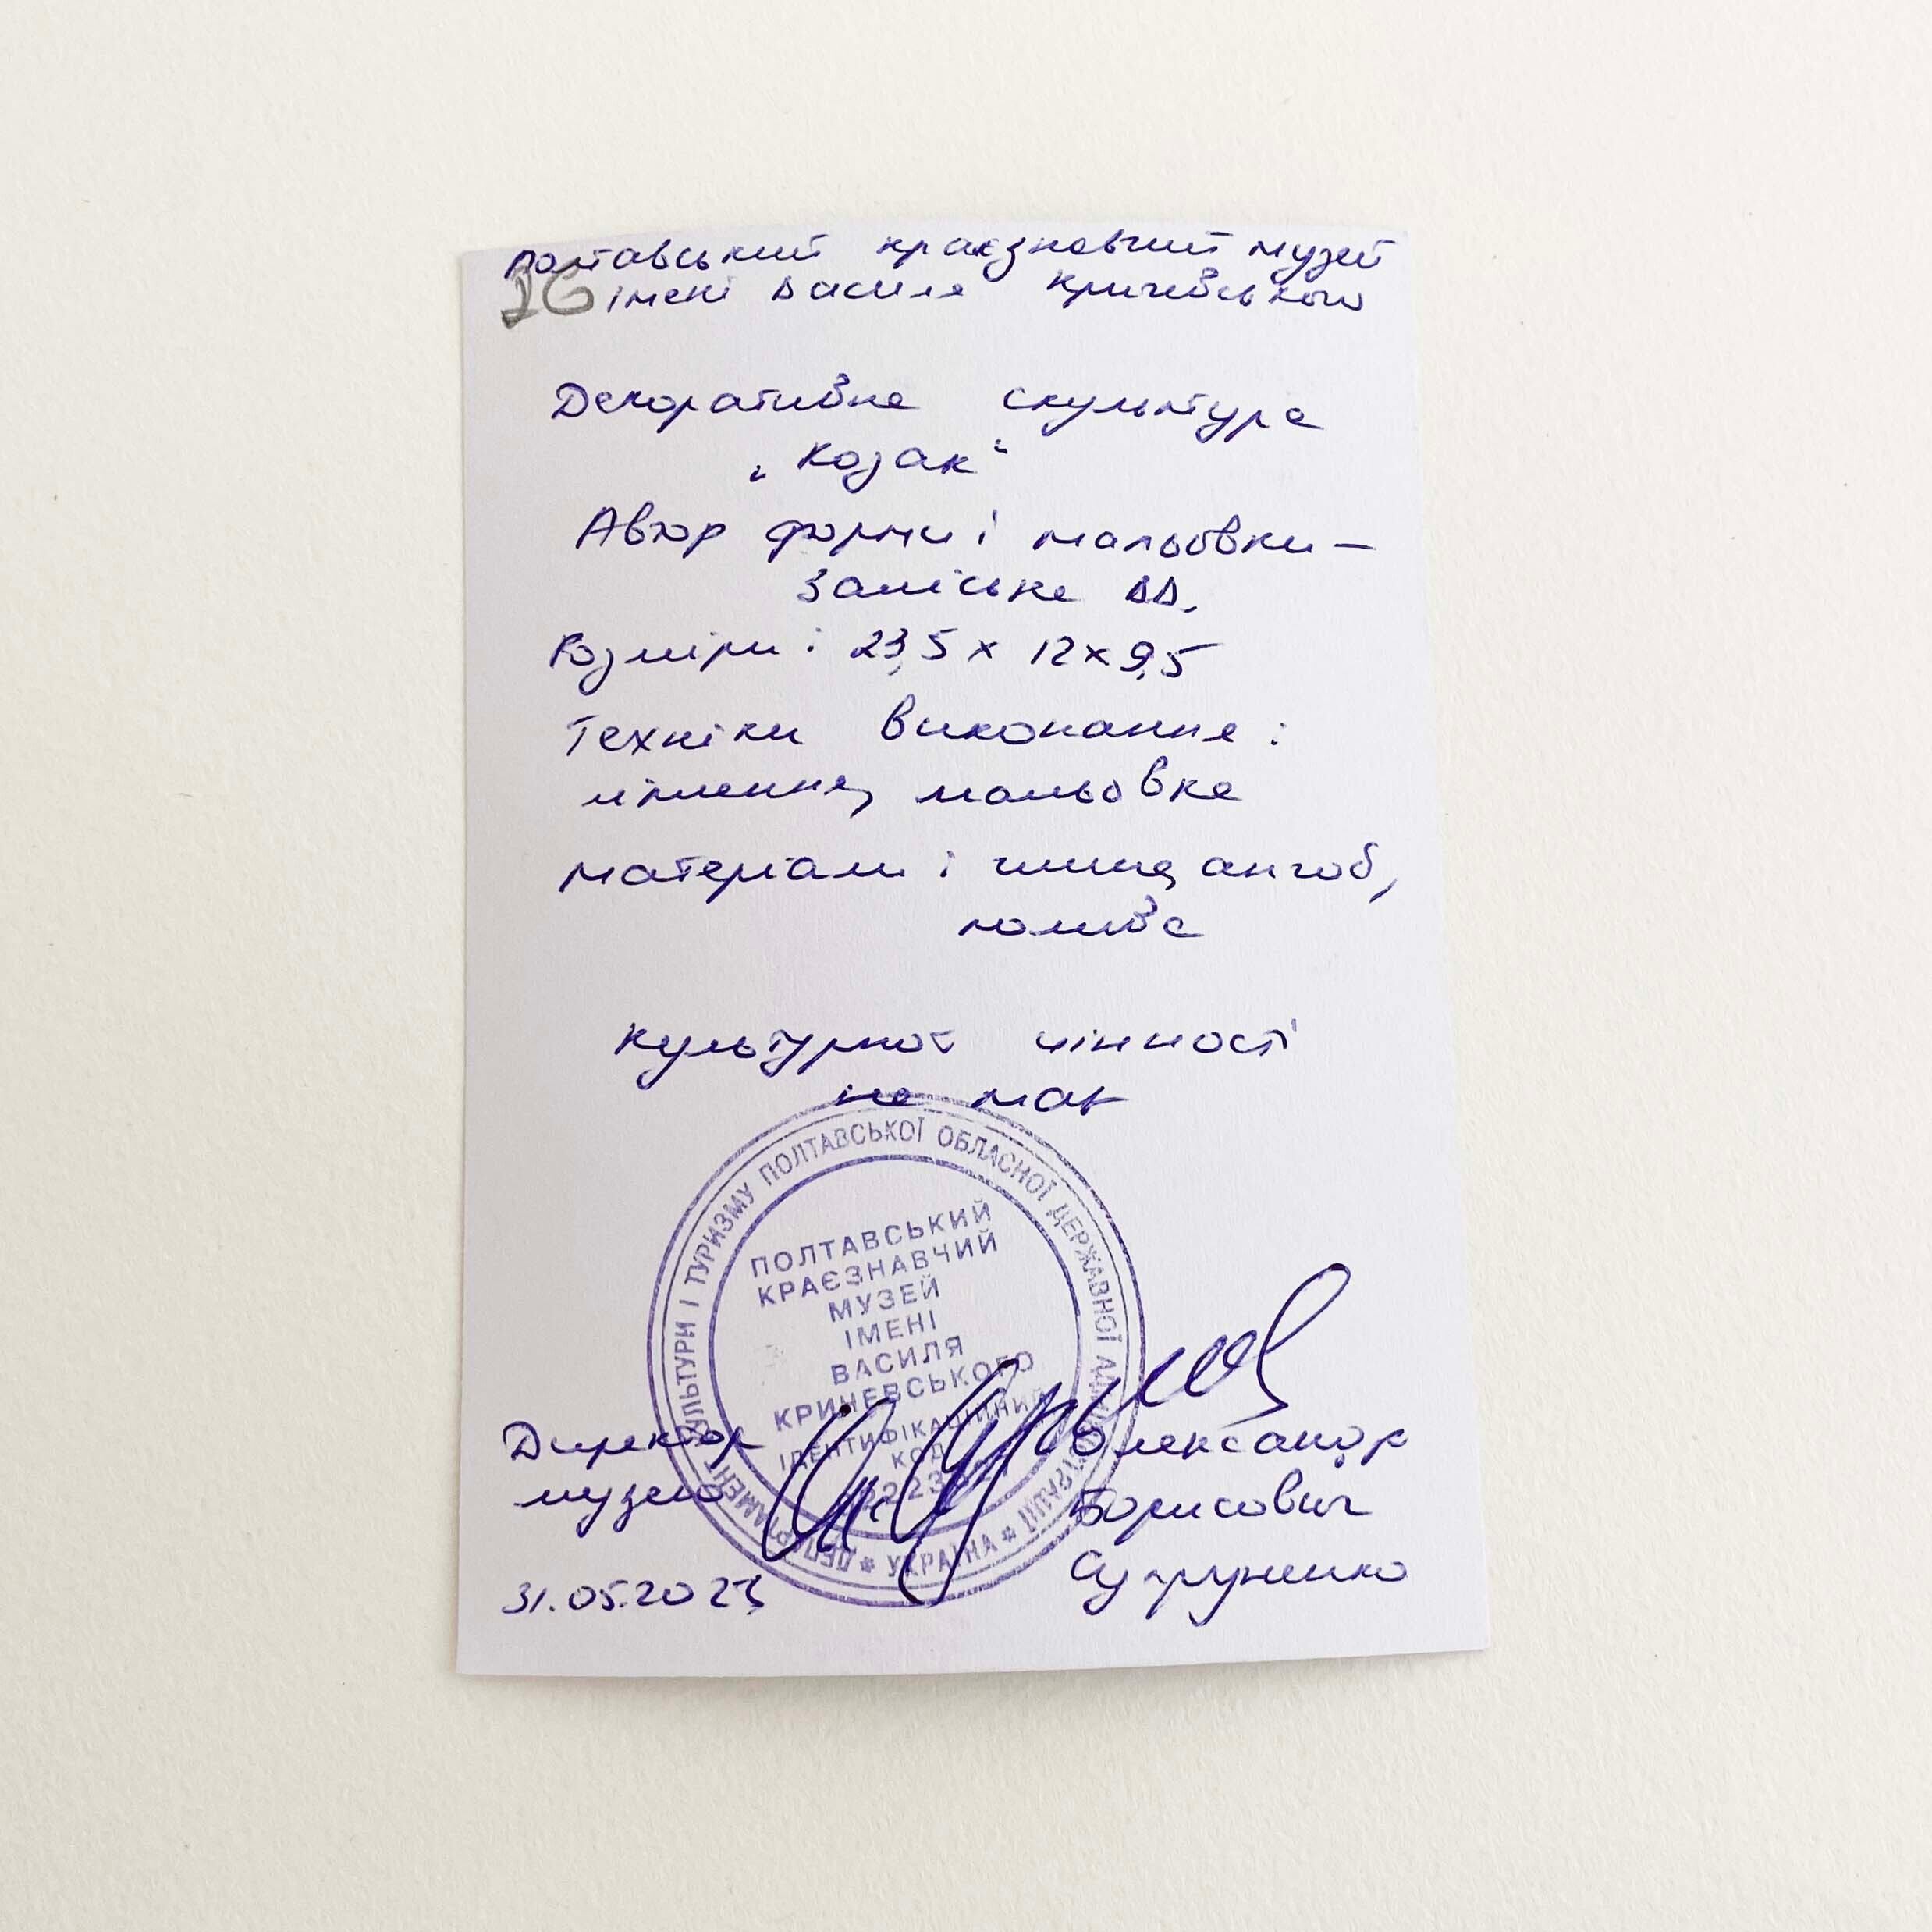 Полтавський краєзнавчий музей
26 імені Василя Кричевського
Декоративна скульптура
„Козак“
Автор форми і мальовки –
Заліська
Розміри: 23,5 х 12 х 9,5
Техніки виконання:
ліплення, мальовка
Матеріали: глина, ангоб,
полива
Культурної цінності
не має
ДЕПАРТАМЕНТ КУЛЬТУРИ І ТУРИЗМУ ПОЛТАВСЬКОЇ ОБЛАСНОЇ ДЕРЖАВНОЇ АДМІНІСТРАЦІЇ * УКРАЇНА *
ПОЛТАВСЬКИЙ
КРАЄЗНАВЧИЙ
МУЗЕЙ
ІМЕНІ
ВАСИЛЯ
КРИЧЕВСЬКОГО
ІДЕНТИФІКАЦІЙНИЙ
КОД
Директор
музею
Олександр
Борисович
Супруненко
31.05.2023